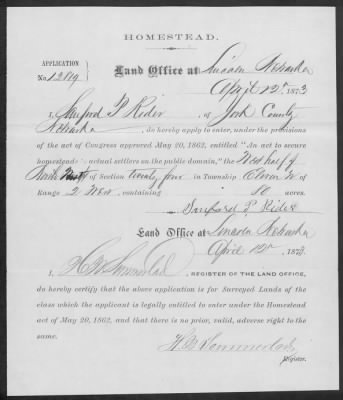 HOMESTEAD.
APPLICATION
Land Office at Lincoln Nebraska
No. 12819
April 12th 1873
I, Sanford P Rider, of York County
Nebraska, do hereby apply to enter, under the provisions
of the act of Congress approved May 20, 1862, entitled "An act to secure
homesteads to actual settlers on the public domain," the West half of
North of Section twenty four in Township Eleven N. of
Range 2 West, containing 80 acres.
Sanford P Rider
Land Office at Lincoln Nebraska
April 12th 1873.
I, REGISTER OF THE LAND OFFICE,
do hereby certify that the above application is for Surveyed Lands of the
class which the applicant is legally entitled to enter under the Homestead
act of May 20, 1862, and that there is no prior, valid, adverse right to the
same.
Register.